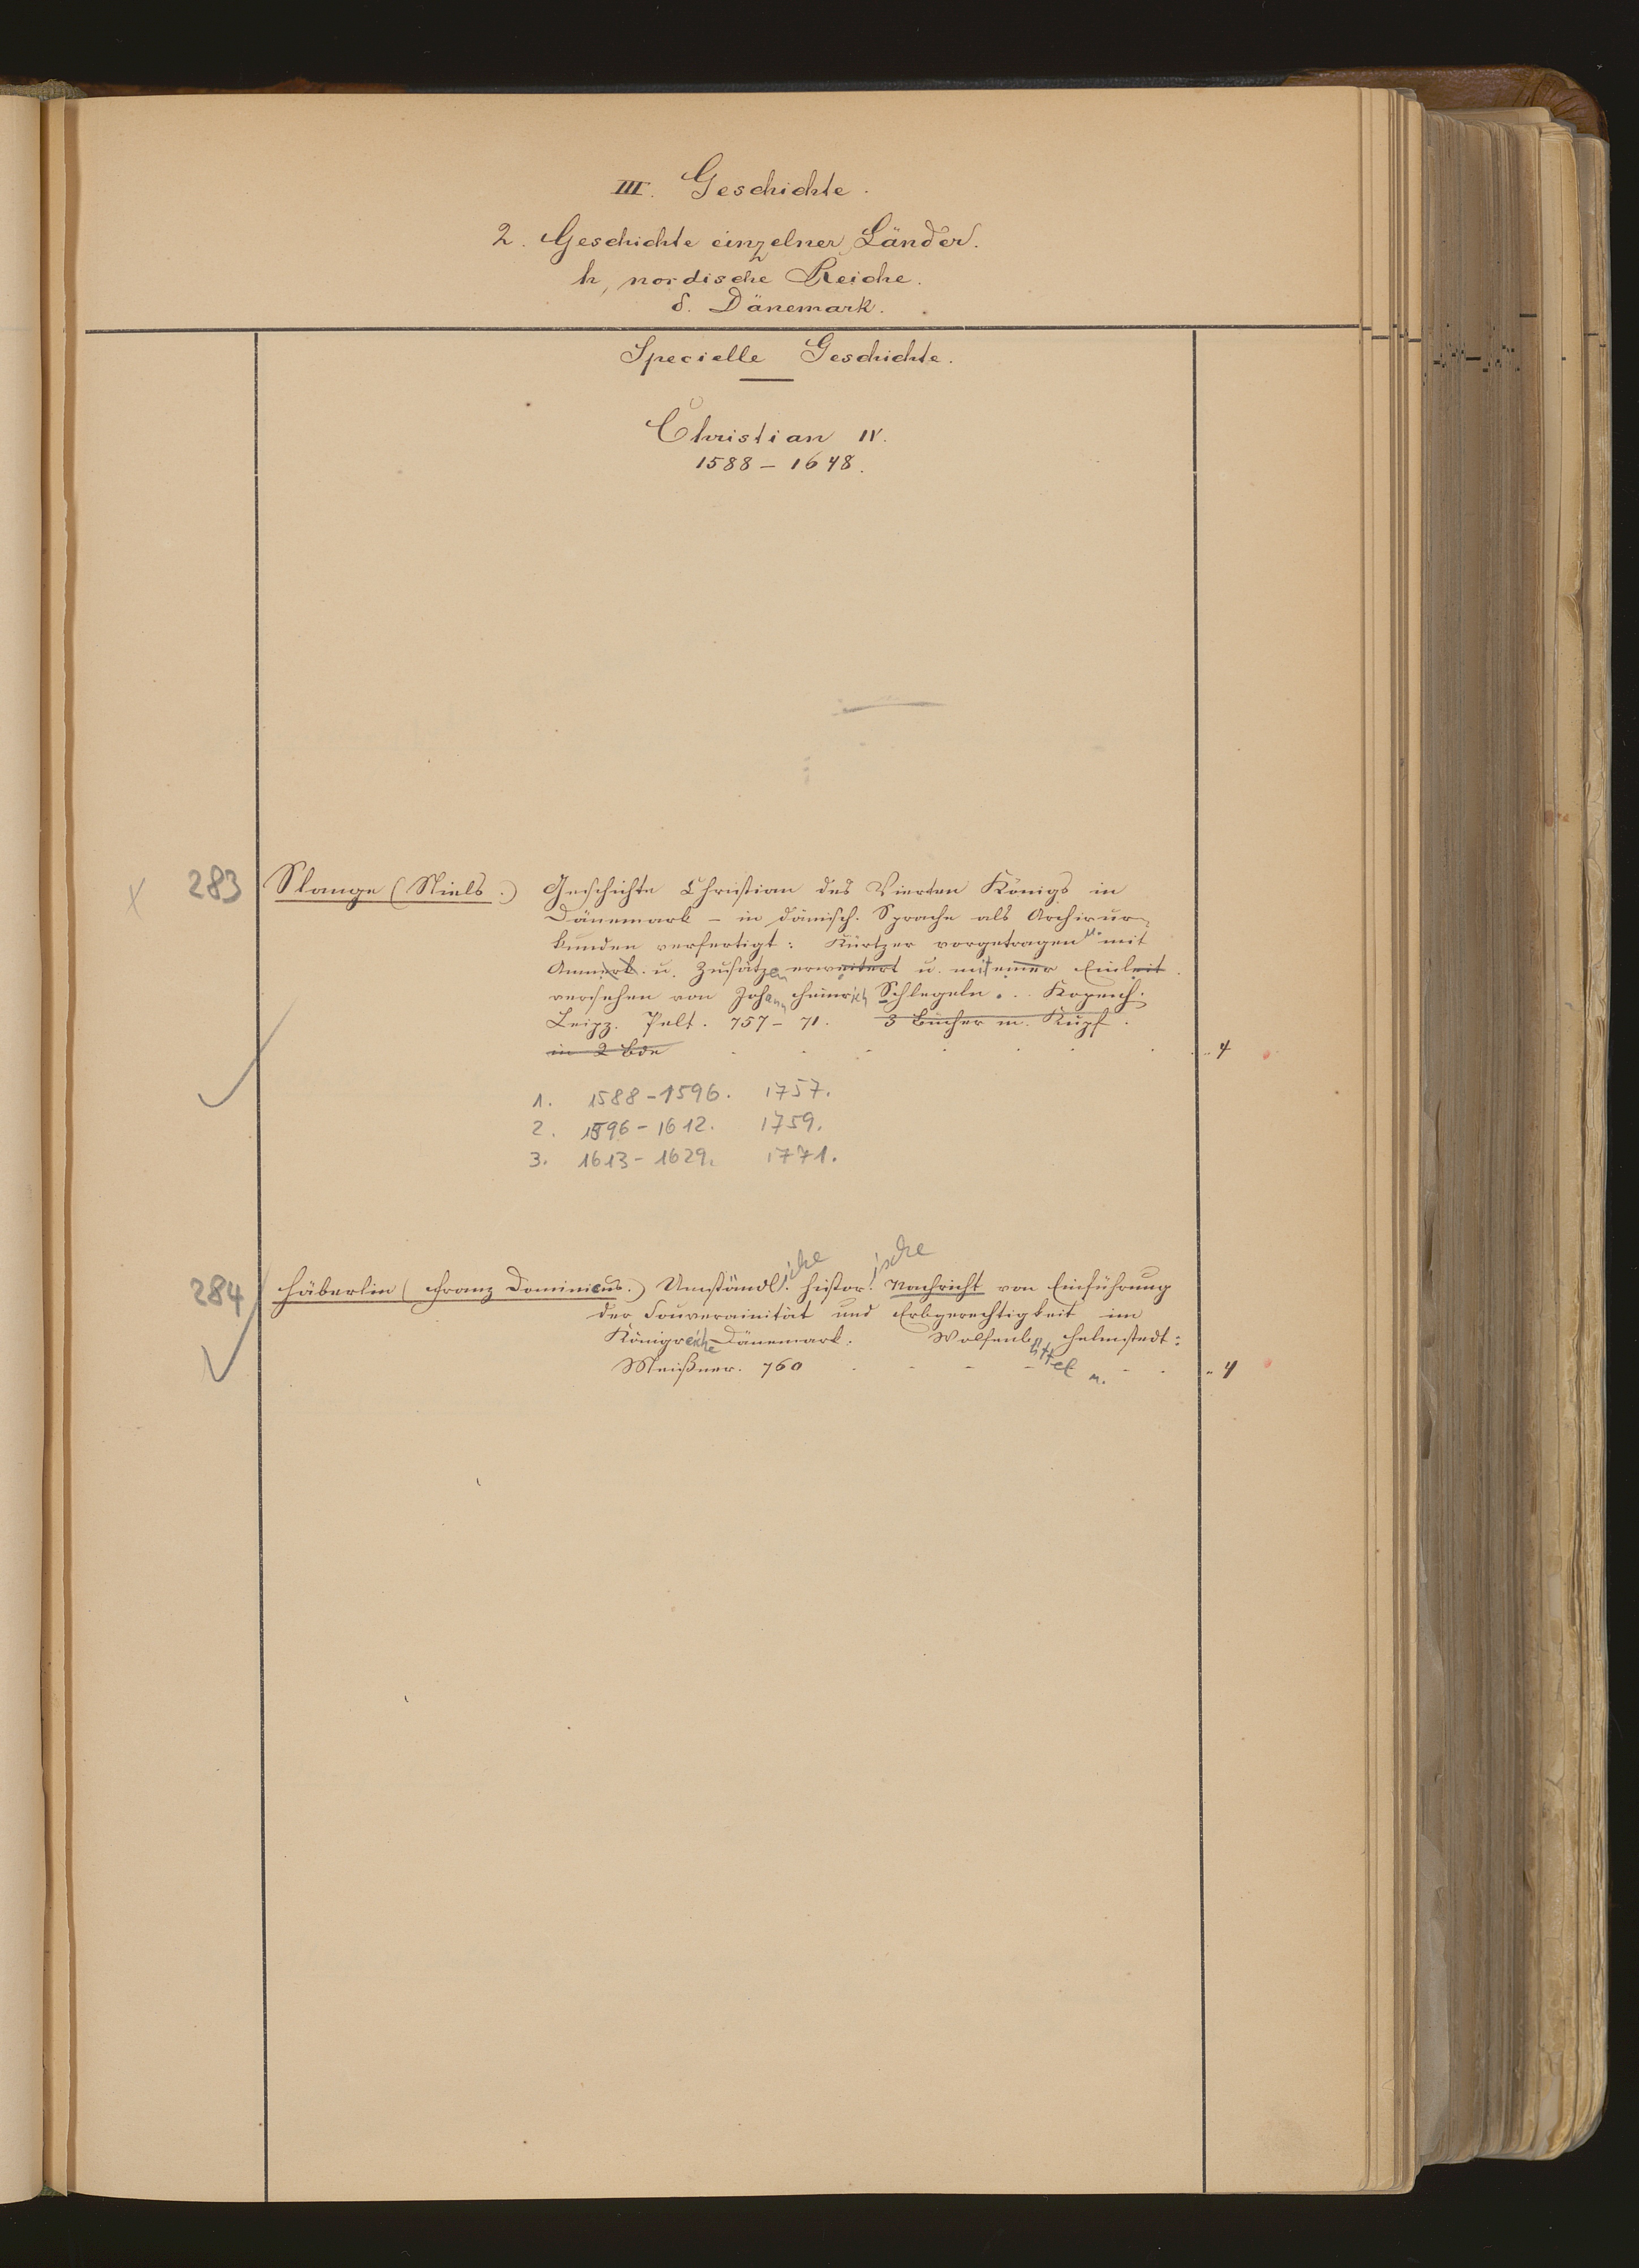 III. Geschichte.
2. Geschichte einzelner Länder.
h, nordische Reiche.
δ. Dänemark.
Specielle Geschichte.
Christian IV.
1588 – 1648.
x 283 Slange (Niels.) Geschichte Christian des Vierten Königs in
Dänemark – in dänisch. Sprache als Archivur-
kunden verfertigt: Kürtzer vorgetragen u. mit
Anmerk. u. Zusätzen erweitert u. mit einer Einleit.
versehen von Johann Heinrich Schlegeln... Kopenh.
Leipz. Pelt. 757 – 71. 3 Bücher m. Kupf.
in 2 Bde . . . . . . . . 4
1. 1588 – 1596. 1757.
2. 1596 – 1612. 1759.
3. 1613 – 1629. 1771.
284 Häberlin (Franz Dominicus.) Umständl.iche histor.ische Nachricht von Einführung
der Souverainität und Erbgerechtigkeit im
Königreiche Dänemark. Wolfenbüttel u. Helmstedt:
Meißner. 760 . . . . . . 4